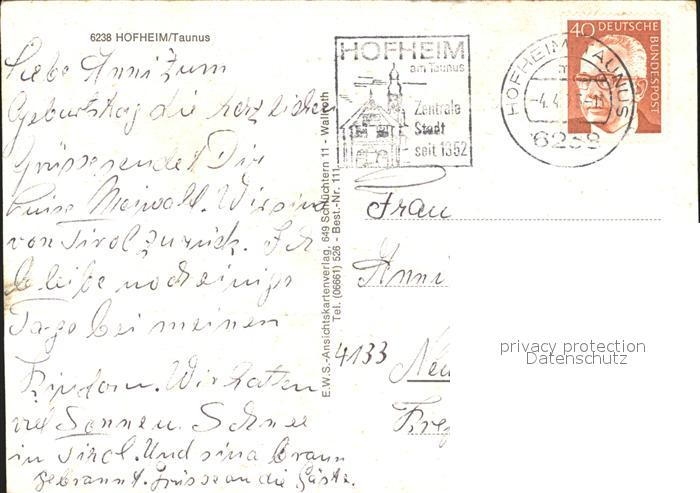 6238 HOFHEIM/Taunus
Liebe Anni Zum
Geburtstag die herzlichen
Grüsse sendet Dir
Luise Maiwald. Wir sind
von Tirol zurück. Ich
bleibe noch einige
Tage bei meinen
Kindern. Wir hatten
viel Sonne u. Schnee
in Tirol. Und sind braun
gebrannt. Grüsse an die Gäste.
E.W.S.-Ansichtskartenverlag, 649 Schlüchtern 11 - Wallroth
Tel. (06661) 526 - Best.-Nr. 111
HOFHEIM
am Taunus
Zentrale
Stadt
seit 1352
HOFHEIM TAUNUS
-4.4.
6238
40 DEUTSCHE
BUNDESPOST
Frau
Anni
4133 Neu
privacy protection
Datenschutz